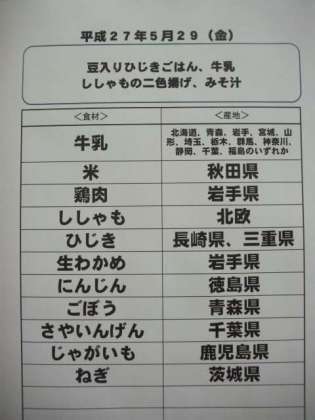 平成27年5月29(金)
豆入りひじきごはん、牛乳
ししゃもの二色揚げ、みそ汁
<食材> <産地>
牛乳 北海道、青森、岩手、宮城、山
形、埼玉、栃木、群馬、神奈川、
静岡、千葉、福島のいずれか
米 秋田県
鶏肉 岩手県
ししゃも 北欧
ひじき 長崎県、三重県
生わかめ 岩手県
にんじん 徳島県
ごぼう 青森県
さやいんげん 千葉県
じゃがいも 鹿児島県
ねぎ 茨城県